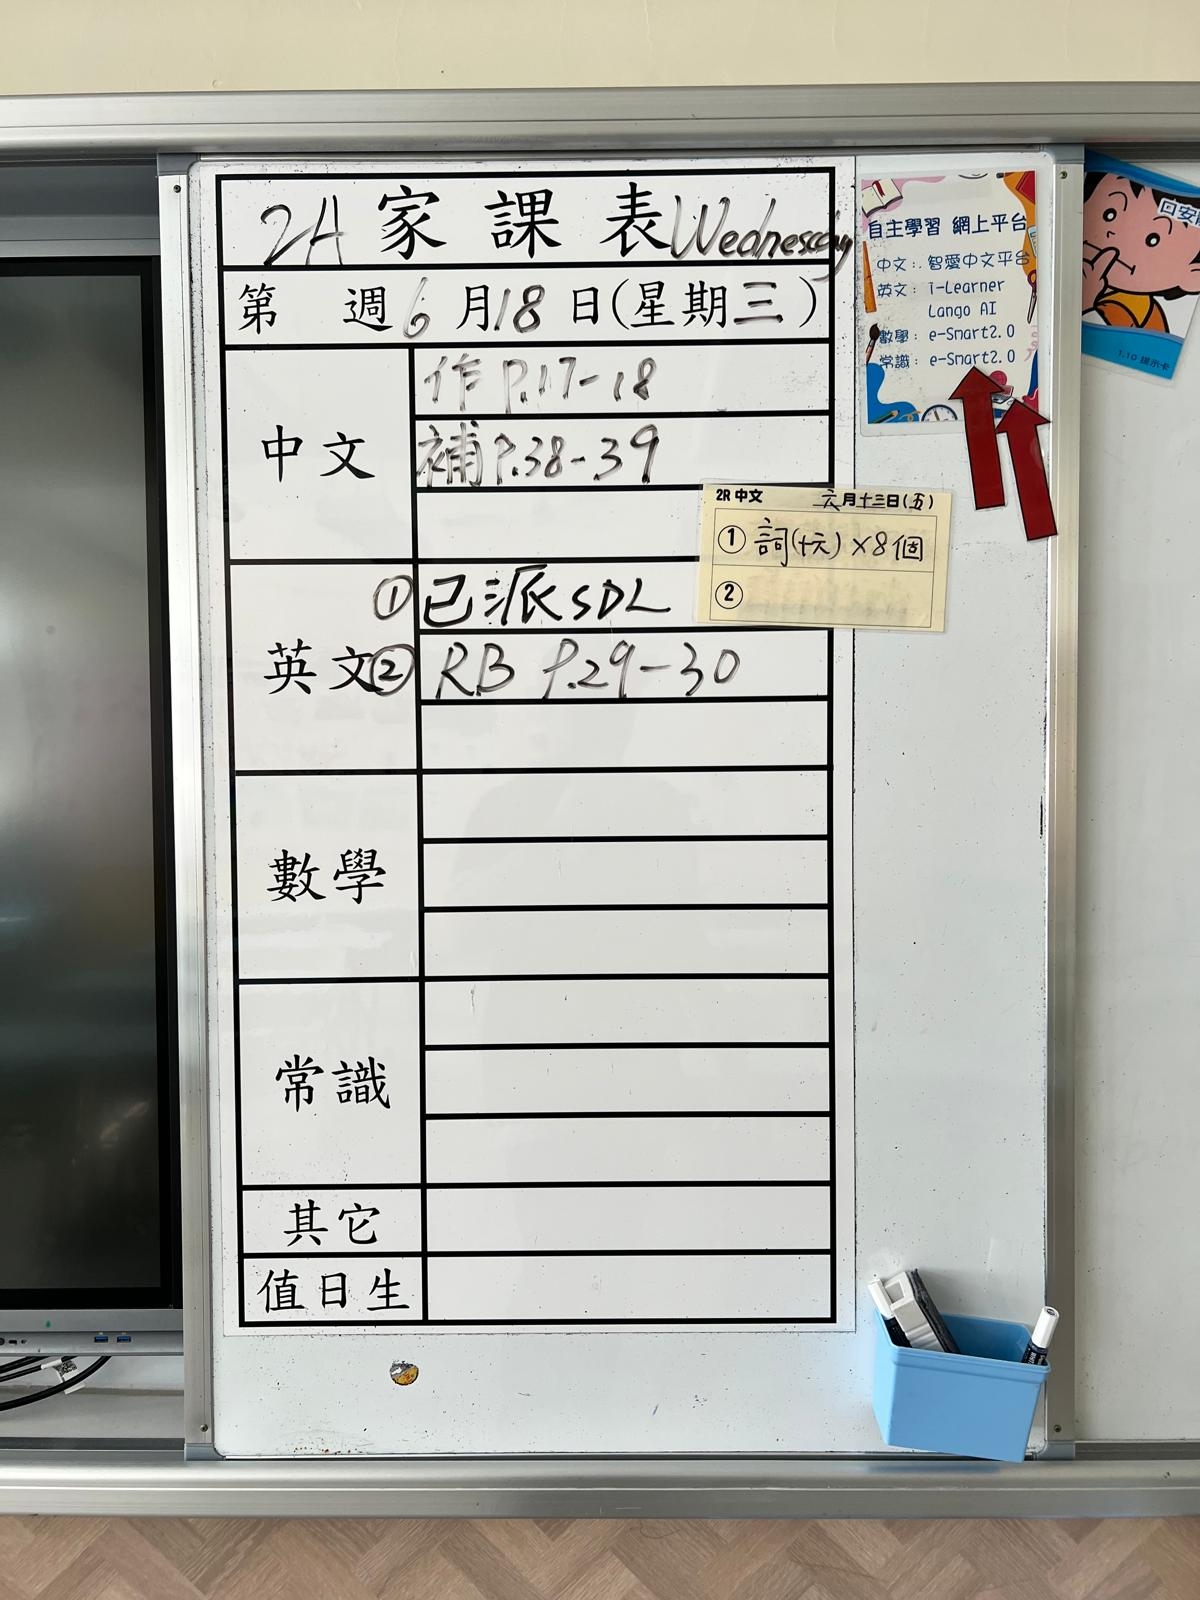 2A 家課表 Wednesday
第 週 6月18日(星期三)
中文
作 P.17-18
補 P.38-39
2R 中文 六月十三日(五)
① 詞(十六)×8個
②
英文
① 已派SDL
② RB P.29-30
數學
常識
其它
值日生
自主學習 網上平台
中文: 智愛中文平台
英文: i-Learner
Lango AI
數學: e-Smart2.0
常識: e-Smart2.0
1.10 提示卡